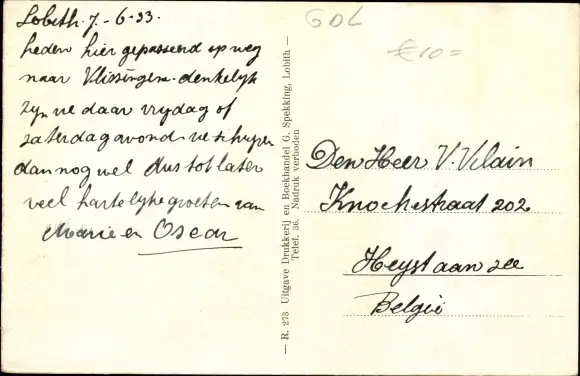 Lobith. 7.-6-33.
heden hier gepasseerd op weg
naar Vlissingen. denkelijk
zijn we daar vrijdag of
zaterdagavond. we schrijven
dan nog wel dus tot later
veel hartelijke groeten van
Marie en Oscar
— R. 273 Uitgave Drukkerij en Boekhandel G. Spekking, Lobith —
Telef. 36. Nadruk verboden
GDL
€10=
Den Heer V. Vlain
Knochestraat 202
Heyst aan zee
België